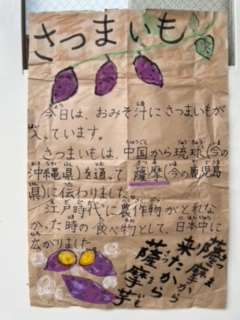 さつまいも
今日は、おみそ汁にさつまいもが
入っています。
さつまいもは、中国から琉球(今の
沖縄県)を通って薩摩(今の鹿児島
県)に伝わりました。
江戸時代に農作物がとれな
かった時の食べ物として、日本中に
広がりました。
薩摩から
来たから
薩摩芋